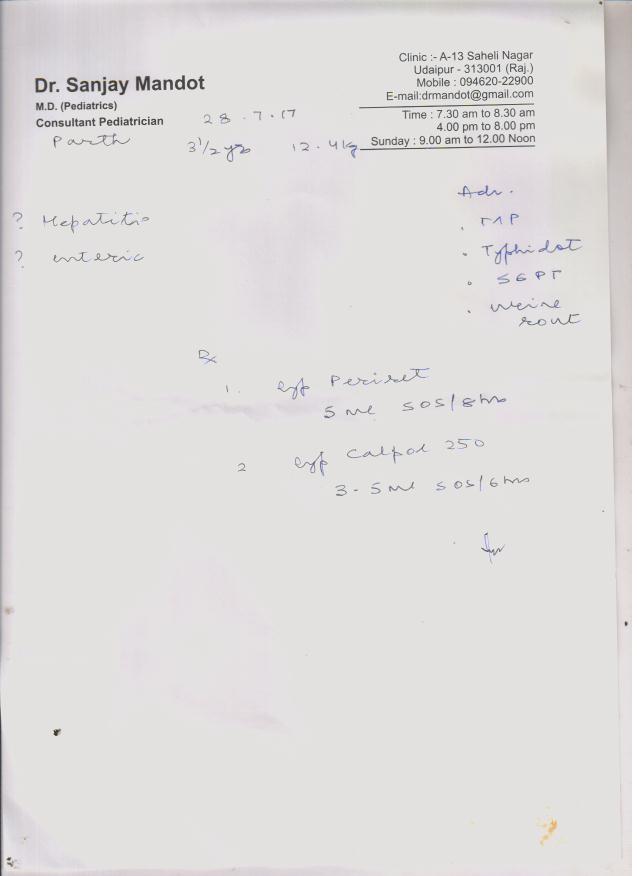 Dr. Sanjay Mandot
M.D. (Pediatrics)
Consultant Pediatrician
Clinic :- A-13 Saheli Nagar
Udaipur - 313001 (Raj.)
Mobile : 094620-22900
E-mail:drmandot@gmail.com
Time : 7.30 am to 8.30 am
4.00 pm to 8.00 pm
Sunday : 9.00 am to 12.00 Noon
28.7.17
Parth 3 1/2 yrs 12.4 kg
? Hepatitis
? enteric
Adv.
Typhidot
SGPT
Urine
rout
Rx
1. Syp Periset
5 ml SOS/8 hrs
2 Syp Calpol 250
3-5 ml SOS/6 hrs